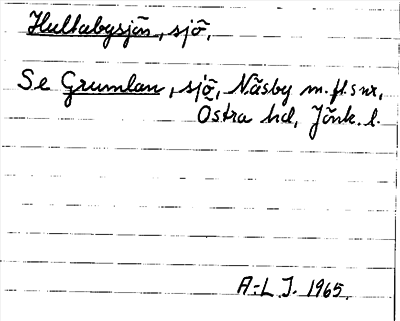 Hultabysjön, sjö,
Se Grumlan, sjö, Näsby m.fl. snr,
Östra hd, Jönk. l.
A-L.J. 1965.